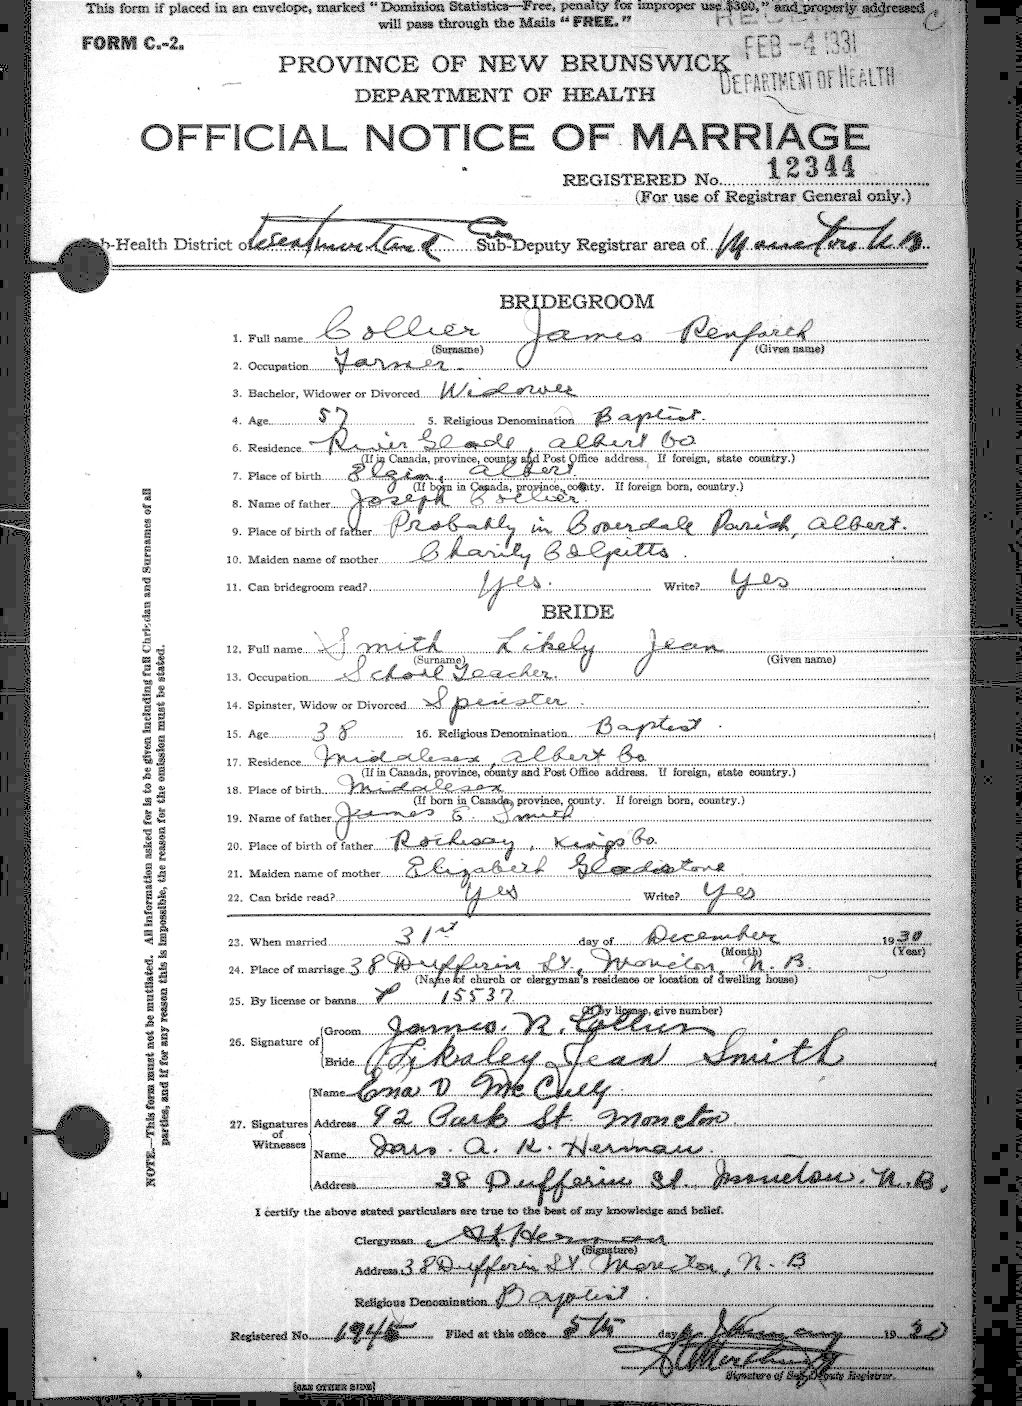 This form if placed in an envelope, marked "Dominion Statistics—Free, penalty for improper use $300," and properly addressed
will pass through the Mails "FREE."
FORM C.-2.
FEB -4 1931
DEPARTMENT OF HEALTH
PROVINCE OF NEW BRUNSWICK
DEPARTMENT OF HEALTH
OFFICIAL NOTICE OF MARRIAGE
REGISTERED No. 12344
(For use of Registrar General only.)
Sub-Health District of Westmorland Co Sub-Deputy Registrar area of Moncton N B.
BRIDEGROOM
1. Full name Collier James Renforth
(Surname) (Given name)
2. Occupation Farmer.
3. Bachelor, Widower or Divorced Widower
4. Age 57 5. Religious Denomination Baptist.
6. Residence River Glade, Albert Co
(If in Canada, province, county and Post Office address. If foreign, state country.)
7. Place of birth Elgin, Albert
(If born in Canada, province, county. If foreign born, country.)
8. Name of father Joseph Collier.
9. Place of birth of father Probably in Coverdale Parish, Albert.
10. Maiden name of mother Charity Colpitts.
11. Can bridegroom read? Yes. Write? Yes
BRIDE
12. Full name Smith Likely Jean
(Surname) (Given name)
13. Occupation School Teacher.
14. Spinster, Widow or Divorced Spinster.
15. Age 38 16. Religious Denomination Baptist.
17. Residence Middlesex, Albert Co
(If in Canada, province, county and Post Office address. If foreign, state country.)
18. Place of birth Middlesex
(If born in Canada, province, county. If foreign born, country.)
19. Name of father James E. Smith
20. Place of birth of father Rothesay, Kings Co.
21. Maiden name of mother Elizabeth Gladstone
22. Can bride read? Yes Write? Yes
23. When married 31st day of December 1930
(Month) (Year)
24. Place of marriage 38 Dufferin St., Moncton, N. B.
(Name of church or clergyman's residence or location of dwelling house)
25. By license or banns 15537
(If by license, give number)
26. Signature of Groom James. R. Collier
Bride Likeley Jean Smith
27. Signatures of Witnesses
Name Ena D McCully.
Address 92 Park St. Moncton.
Name Mrs. A. K. Herman.
Address 38 Dufferin St. Moncton. N. B.
I certify the above stated particulars are true to the best of my knowledge and belief.
Clergyman A K Herman
(Signature)
Address 38 Dufferin St Moncton, N. B
Religious Denomination Baptist.
Registered No. 1945 Filed at this office 5th day of January 19 30
Signature of Sub-Deputy Registrar.
(SEE OTHER SIDE)
NOTE.—This form must not be mutilated. All information asked for is to be given including full Christian and Surnames of all
parties, and if for any reason this is impossible, the reason for the omission must be stated.